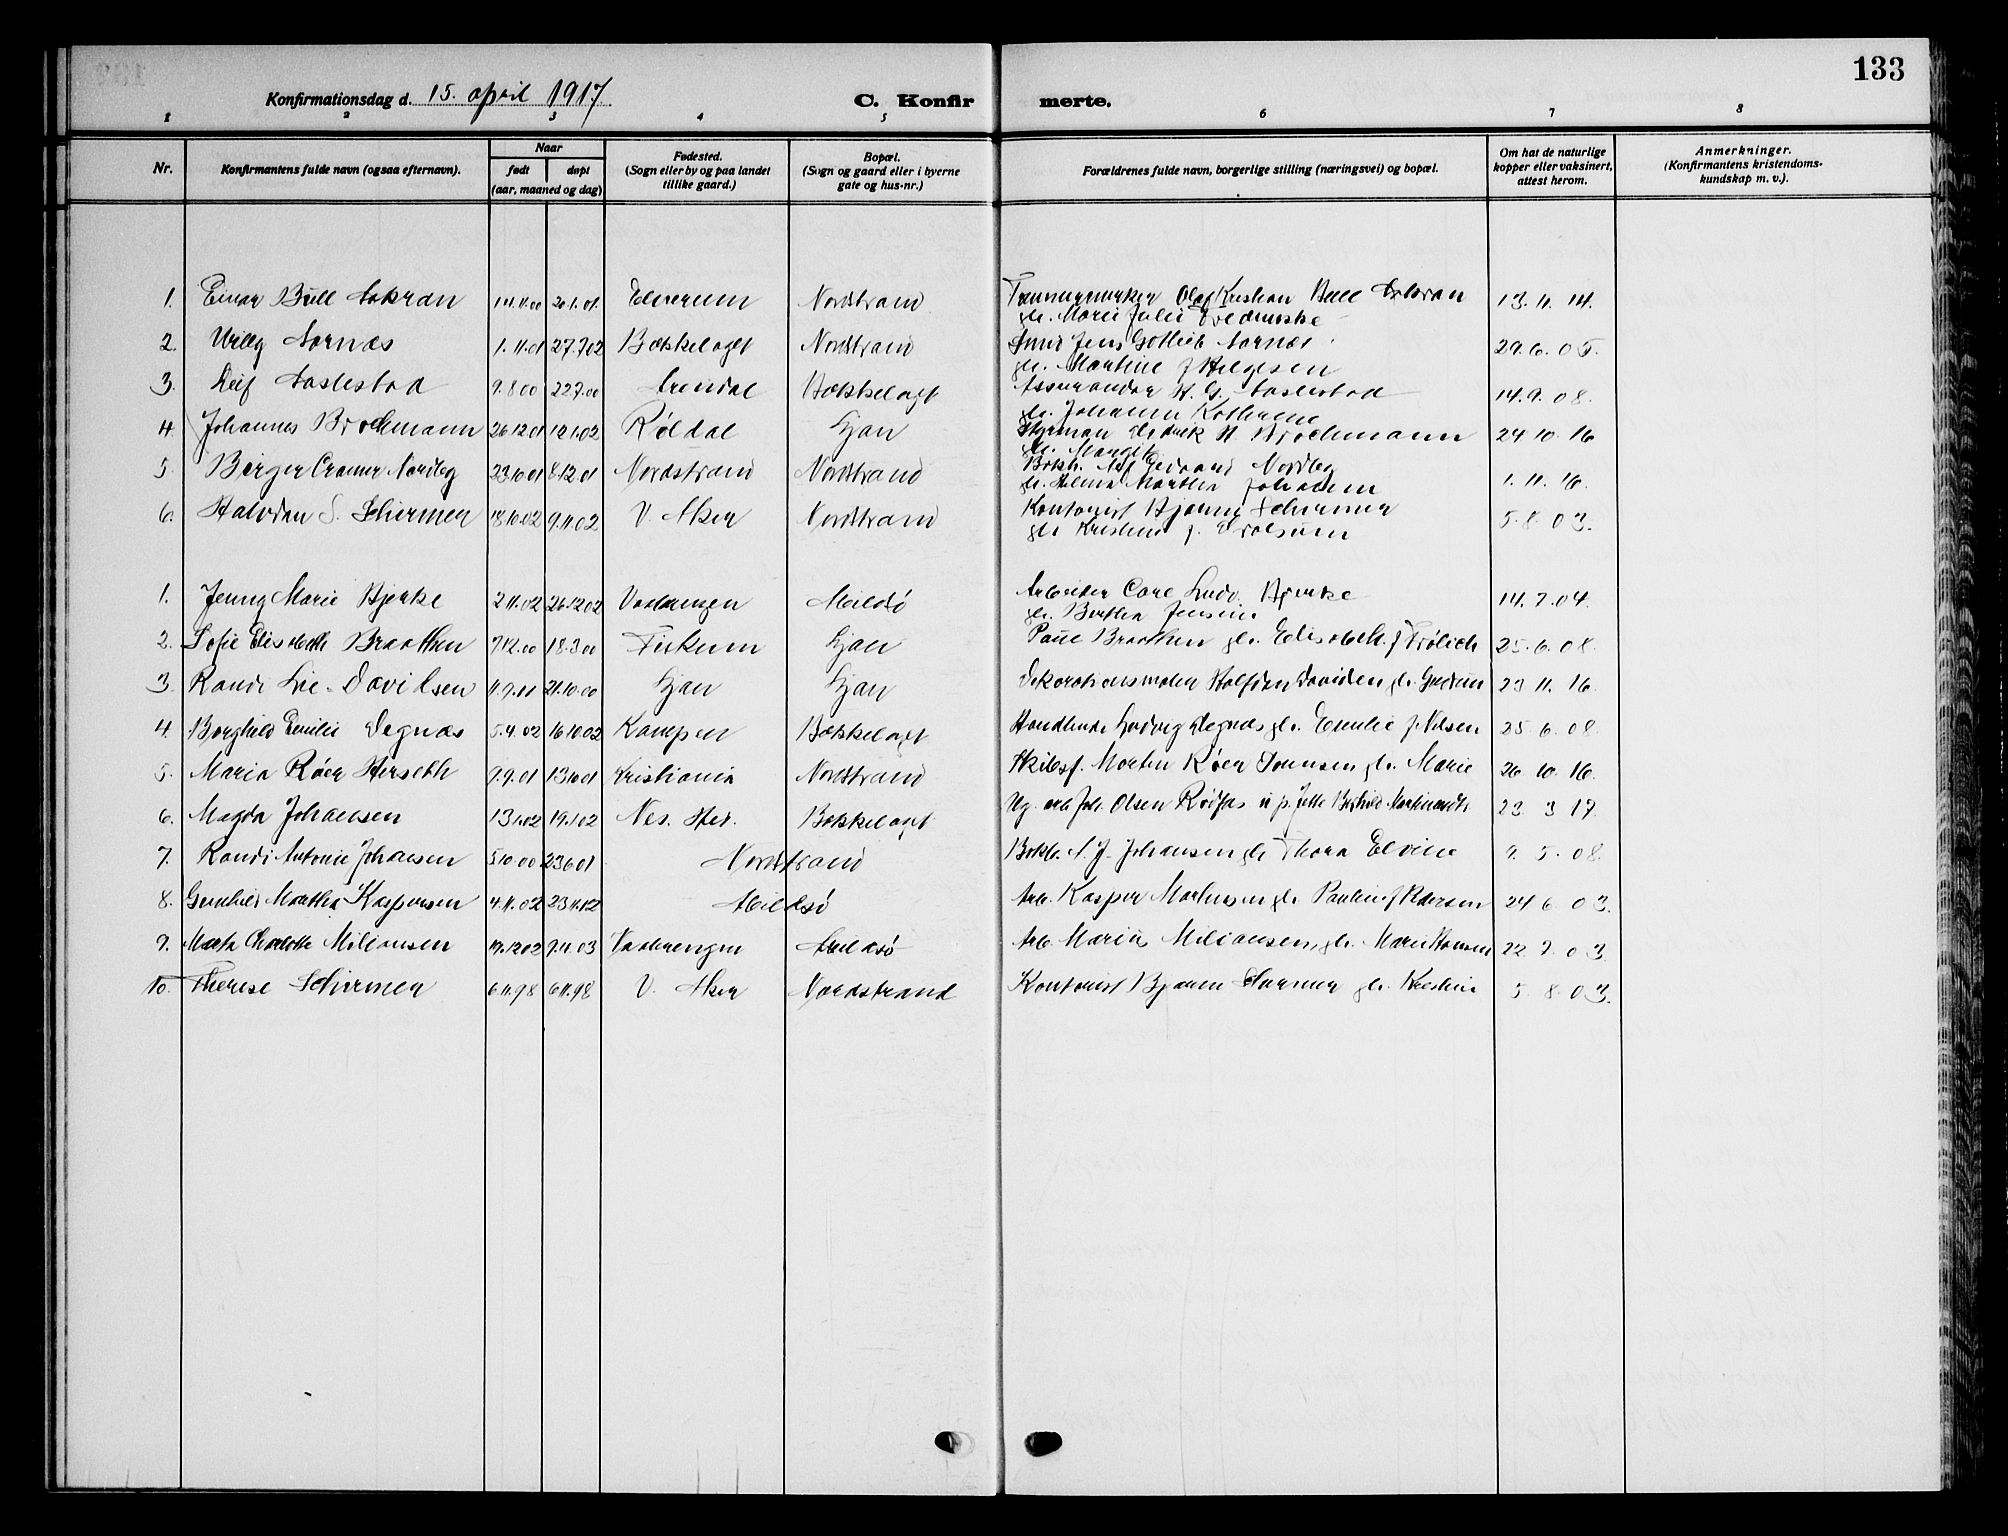 133
Konfirmationsdag d. 15. april 1917
C. Konfirmerte.
1 2 3 4 5 6 7 8
Nr. Konfirmantens fulde navn (ogsaa efternavn). Naar født døpt (aar, maaned og dag) Fødested. (Sogn eller by og paa landet tillike gaard.) Bopæl. (Sogn og gaard eller i byerne gate og hus-nr.) Forældrenes fulde navn, borgerlige stilling (næringsvei) og bopæl. Om hat de naturlige kopper eller vaksinert, attest herom. Anmerkninger. (Konfirmantens kristendoms-kundskap m. v.).
1. Einar Bull Aakran 20.1.01 Elverum Nordstrand Olaf Kristian Bull Aakran 13. 11. 14.
gl. Marie Julie
2. Willy Aarnæs 1.11.01 27.7.02 Bækkelaget Nordstrand Smed Jens Gotlieb Aarnæs 29. 6. 05.
gl. Martine f Helgesen
3. Leif Aaslestad 9.8.00 22.7.00 Arendal Bækkelaget Assurandør H. G. Aaslestad 14. 9. 08.
gl. Johanna Kathrine
4. Johannes Brochmann 26.12.01 Røldal Ljan Styrman H. Brochmann 24 10. 16
gl. Margit
5. Birger Cramer Nordby 23.10.01 8.12.01 Nordstrand Nordstrand Bokh. Nordby 1. 11. 16.
gl. Martha Johansen
6. Halvdan S. Schirmer 18.10.02 9.11.02 V. Aker Nordstrand Kontorist Bjarne Schirmer 5. 8. 03.
gl. Kristine f.
1. Jenny Marie Bjerke 2.11.02 26.12.02 Vaalerengen Malmö Arbeider Carl Ludv. Bjerke 14. 7. 04.
gl. Berthea Jensine
2. Sofie Elisabeth Braathen 7.12.00 18.3.00 Fiskum Ljan Paul Braathen gl. Elisabeth f Frölich 25. 6. 08.
3. Randi Lie-Davidsen 21.10.00 Ljan Ljan Dekorationsmaler Halfdan Davidsen gl. Gudrun 23 11. 16.
4. Borghild Emilie Degnæs 5.4.02 16.10.02 Kampen Bækkelaget Handlende Ludvig Degnæs gl. Emilie f. Nilsen 25. 6. 08.
5. Maria Røer Herseth 9.9.01 13.10.01 Kristiania Nordstrand Skibsf. Morten Røer gl. Marie 26 10. 16.
6. Magda Johansen 13.1.02 19.1.02 Nes. Hed. Bækkelaget Ug. arb Joh. Olsen 23. 3 17.
7. Randi Antonie Johansen 5.10.00 23.6.01 Nordstrand Bokh. A. J. Johansen gl. Thora Elvine 9. 5. 08.
8. Gunhild Martha Kaspersen 4.11.02 23.11.02 Arb. Kasper Martinsen gl. Pauline f Pedersen 24 6 03.
9. Marta Charlotte Miliansen 19.12.02 9.4.03 Vaalerengen Arb. Marius Miliansen, gl. Marie Hansen 22 7. 03
10. Therese Schirmer 6.11.98 6.11.98 V. Aker Nordstrand Kontorist Bjarne Schirmer gl. Kristine 5. 8. 03.